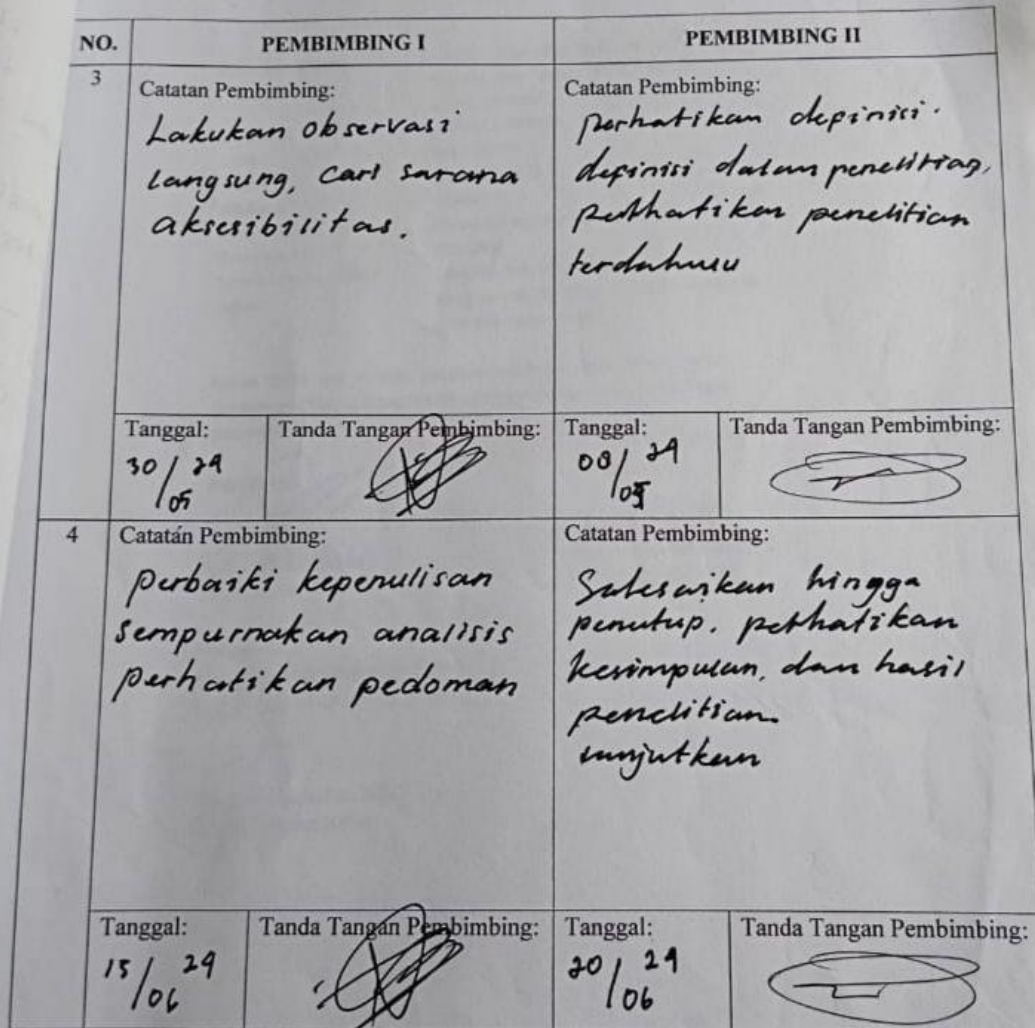 NO. PEMBIMBING I PEMBIMBING II
3
Catatan Pembimbing:
Lakukan observasi
langsung, cari sarana
aksesibilitas.
Catatan Pembimbing:
perhatikan depinisi.
depinisi dalam penelitian,
perhatikan penelitian
terdahulu
Tanggal:
30/05 24
Tanda Tangan Pembimbing:
Tanggal:
08/05 24
Tanda Tangan Pembimbing:
4
Catatan Pembimbing:
perbaiki kepenulisan
sempurnakan analisis
perhatikan pedoman
Catatan Pembimbing:
Selesaikan hingga
penutup. perhatikan
kesimpulan, dan hasil
penelitian.
lanjutkan
Tanggal:
15/06 24
Tanda Tangan Pembimbing:
Tanggal:
20/06 24
Tanda Tangan Pembimbing: